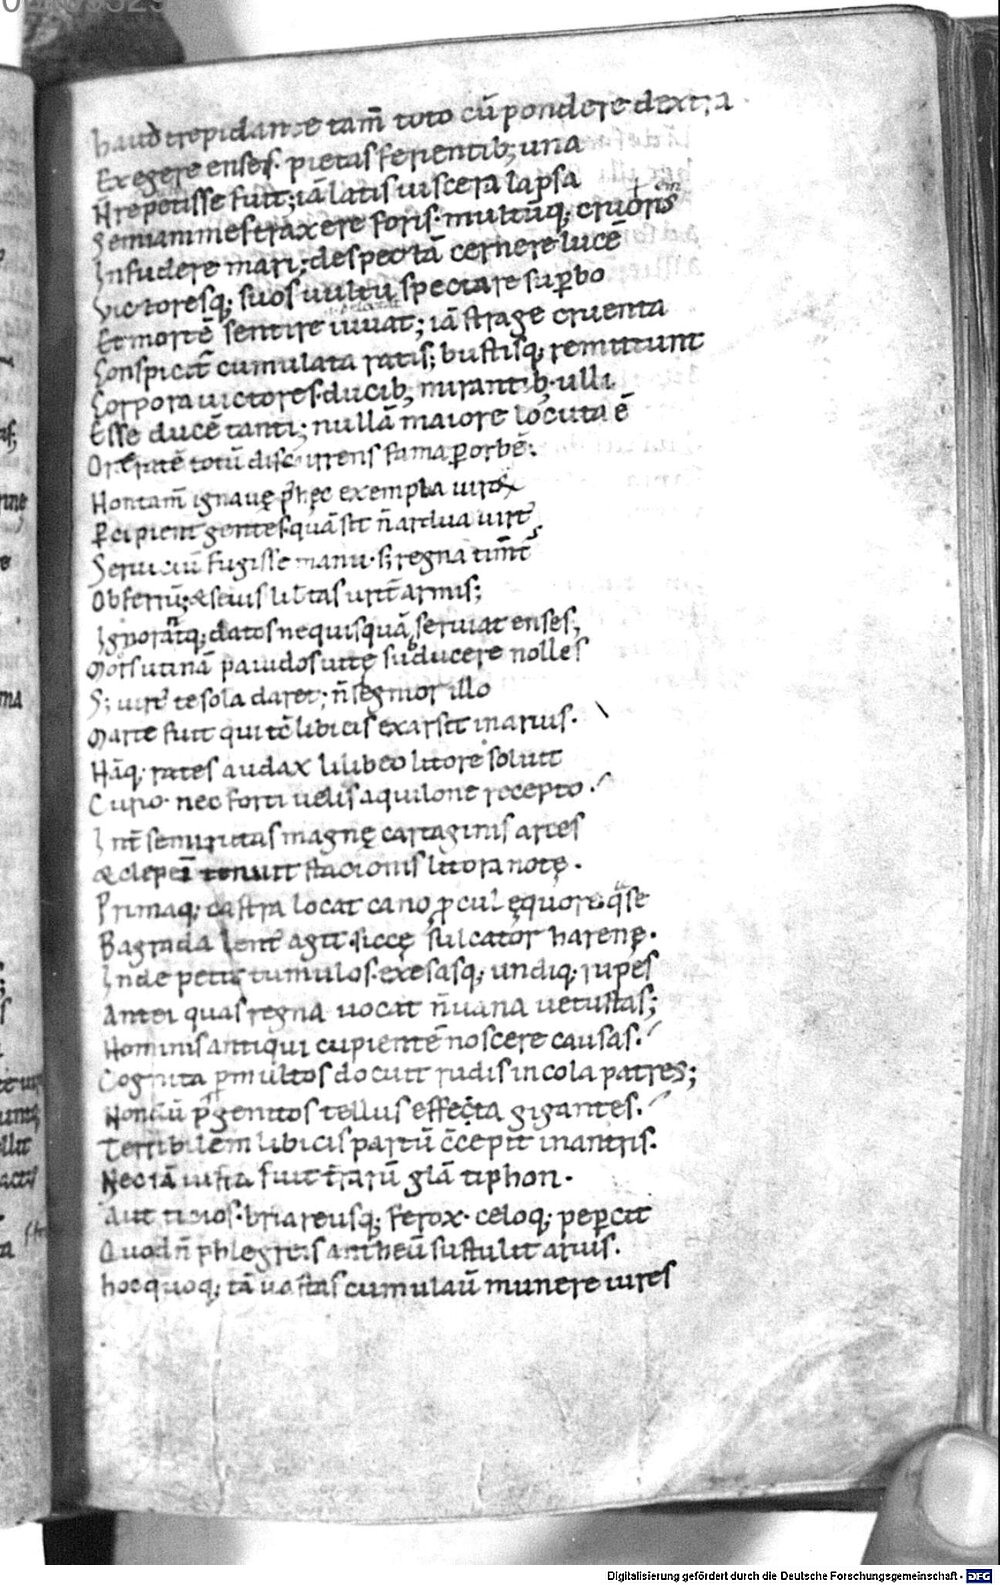 haud trepidante tam̄ toto cū pondere dextra
Exegere enses. pietas ferientib; una
N̄ repetisse fuit; iā latis uiscera lapsa
Semianimes traxere foris. multūq; cruoris
Infudere mari; despectā cernere luce
Victoresq; suos uultu spectare suꝑbo
Et mortē sentire iuuat; iā strage cruenta
Conspicit̄ cumulata ratis; bustisq; remittunt
Corpora uictores. ducib; mirantib; ulli
Esse ducē tanti; nullā maiore locuta ē
Ore ratē totū discurrens fama ꝑ orbē.
Non tam̄ ignauę p̄ hęc exempla uiroꝝ
ꝑcipient gentes quā sit n̄ ardua uirt᷒
Seruiciū fugisse manu. s; regna tim̄t̄
Ob ferrū; & seuis lib̄tas urit̄ armis;
Ignorāt̄q; datos ne quisquā seruiat enses;
Mors utinā pauidos uitę subducere nolles
S; uirt᷒ te sola daret; n̄ segnior illo
Marte fuit qui tc̄ libicis exarsit in aruis.
Nāq; rates audax lilibeo litore soluit
Curio. nec forti uelis aquilone recepto.
Int̄ semirutas magnę cartaginis arces
& clepeā tenuit stacionis litora notę.
Primaq; castra locat cano ꝓcul ęquore q̄ se
Bagrada lent᷒ agit. siccę sulcator harenę.
Inde petit tumulos. exesasq; undiq; rupes
Antei quas regna uocat n̄ uana uetustas;
Nominis antiqui cupientē noscere causas.
Cognita ꝑ multos docuit rudis incola patres;
Nondū p̄ genitos tellus effecta gigantes.
Terribilem libicis partū c̄cepit in antris.
Nec tā iusta fuit t̄rarū gl̄a tiphon.
Aut ticios. briareusq; ferox. celoq; peꝑcit
Quod n̄ phlegreis antheū sustulit aruis.
hoc quoq; tā uastas cumulauit munere uires